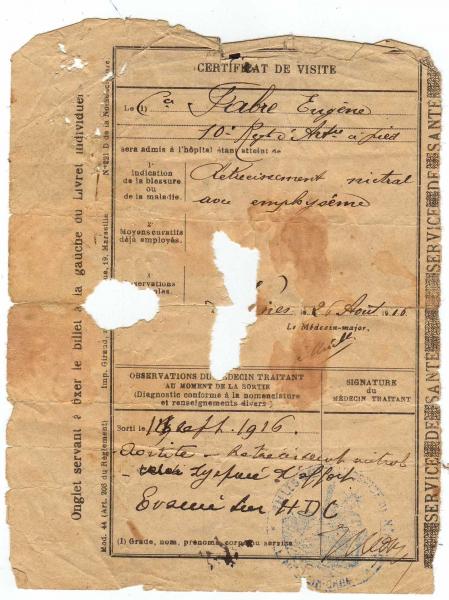 CERTIFICAT DE VISITE
Le (1) Fabre Eugène
10e Regt d'Artie à pied
sera admis à l'hôpital étant atteint de
1°
Indication
de la blessure
ou
de la maladie.
Rétrécissement mitral
avec emphysème
2°
Moyens curatifs
déjà employés.
3
26 Août 1916
Le Médecin-major.
OBSERVATIONS DU MÉDECIN TRAITANT
AU MOMENT DE LA SORTIE
(Diagnostic conforme à la nomenclature
et renseignements divers)
SIGNATURE
du
MÉDECIN TRAITANT
Sorti le 1916
Aortite - Rétrécissement mitral
- Dyspnée d'effort
Evacué sur HDC
(1) Grade, nom, prénoms, corps ou service
Onglet servant à fixer le billet à la gauche du Livret individuel
Mod. 44 (Art. 208 du Règlement)
Imp. Giraud, 19, Marseille
N° 221 D de la Nomenclature.
SERVICE DE SANTÉ SERVICE DE SANTÉ